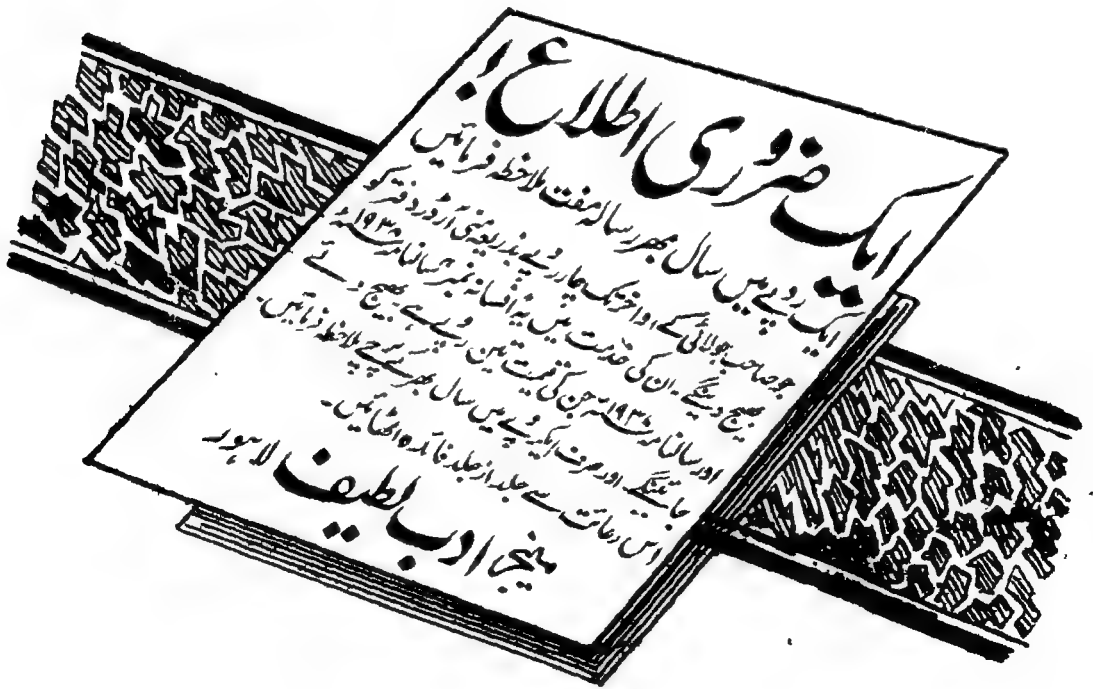 ایک ضروری اطلاع!
ایک روپے میں سال بھر رسالہ مفت ملاحظہ فرمائیں
جو صاحب جولائی کے اواخر تک چار روپے بذریعہ منی آرڈر دفتر کو
بھیج دینگے۔ ان کی خدمت میں یہ افسانہ نمبر، سالنامہ ۱۹۳۸ء
اور سالنامہ جن کی قیمت تین روپے ہے بھیج دئے
جائینگے اور صرف ایک روپے میں سال بھر کے پرچے ملاحظہ فرمائیں۔
اس رعائت سے جلد از جلد فائدہ اٹھائیں۔
منیجر ادب لطیف لاہور